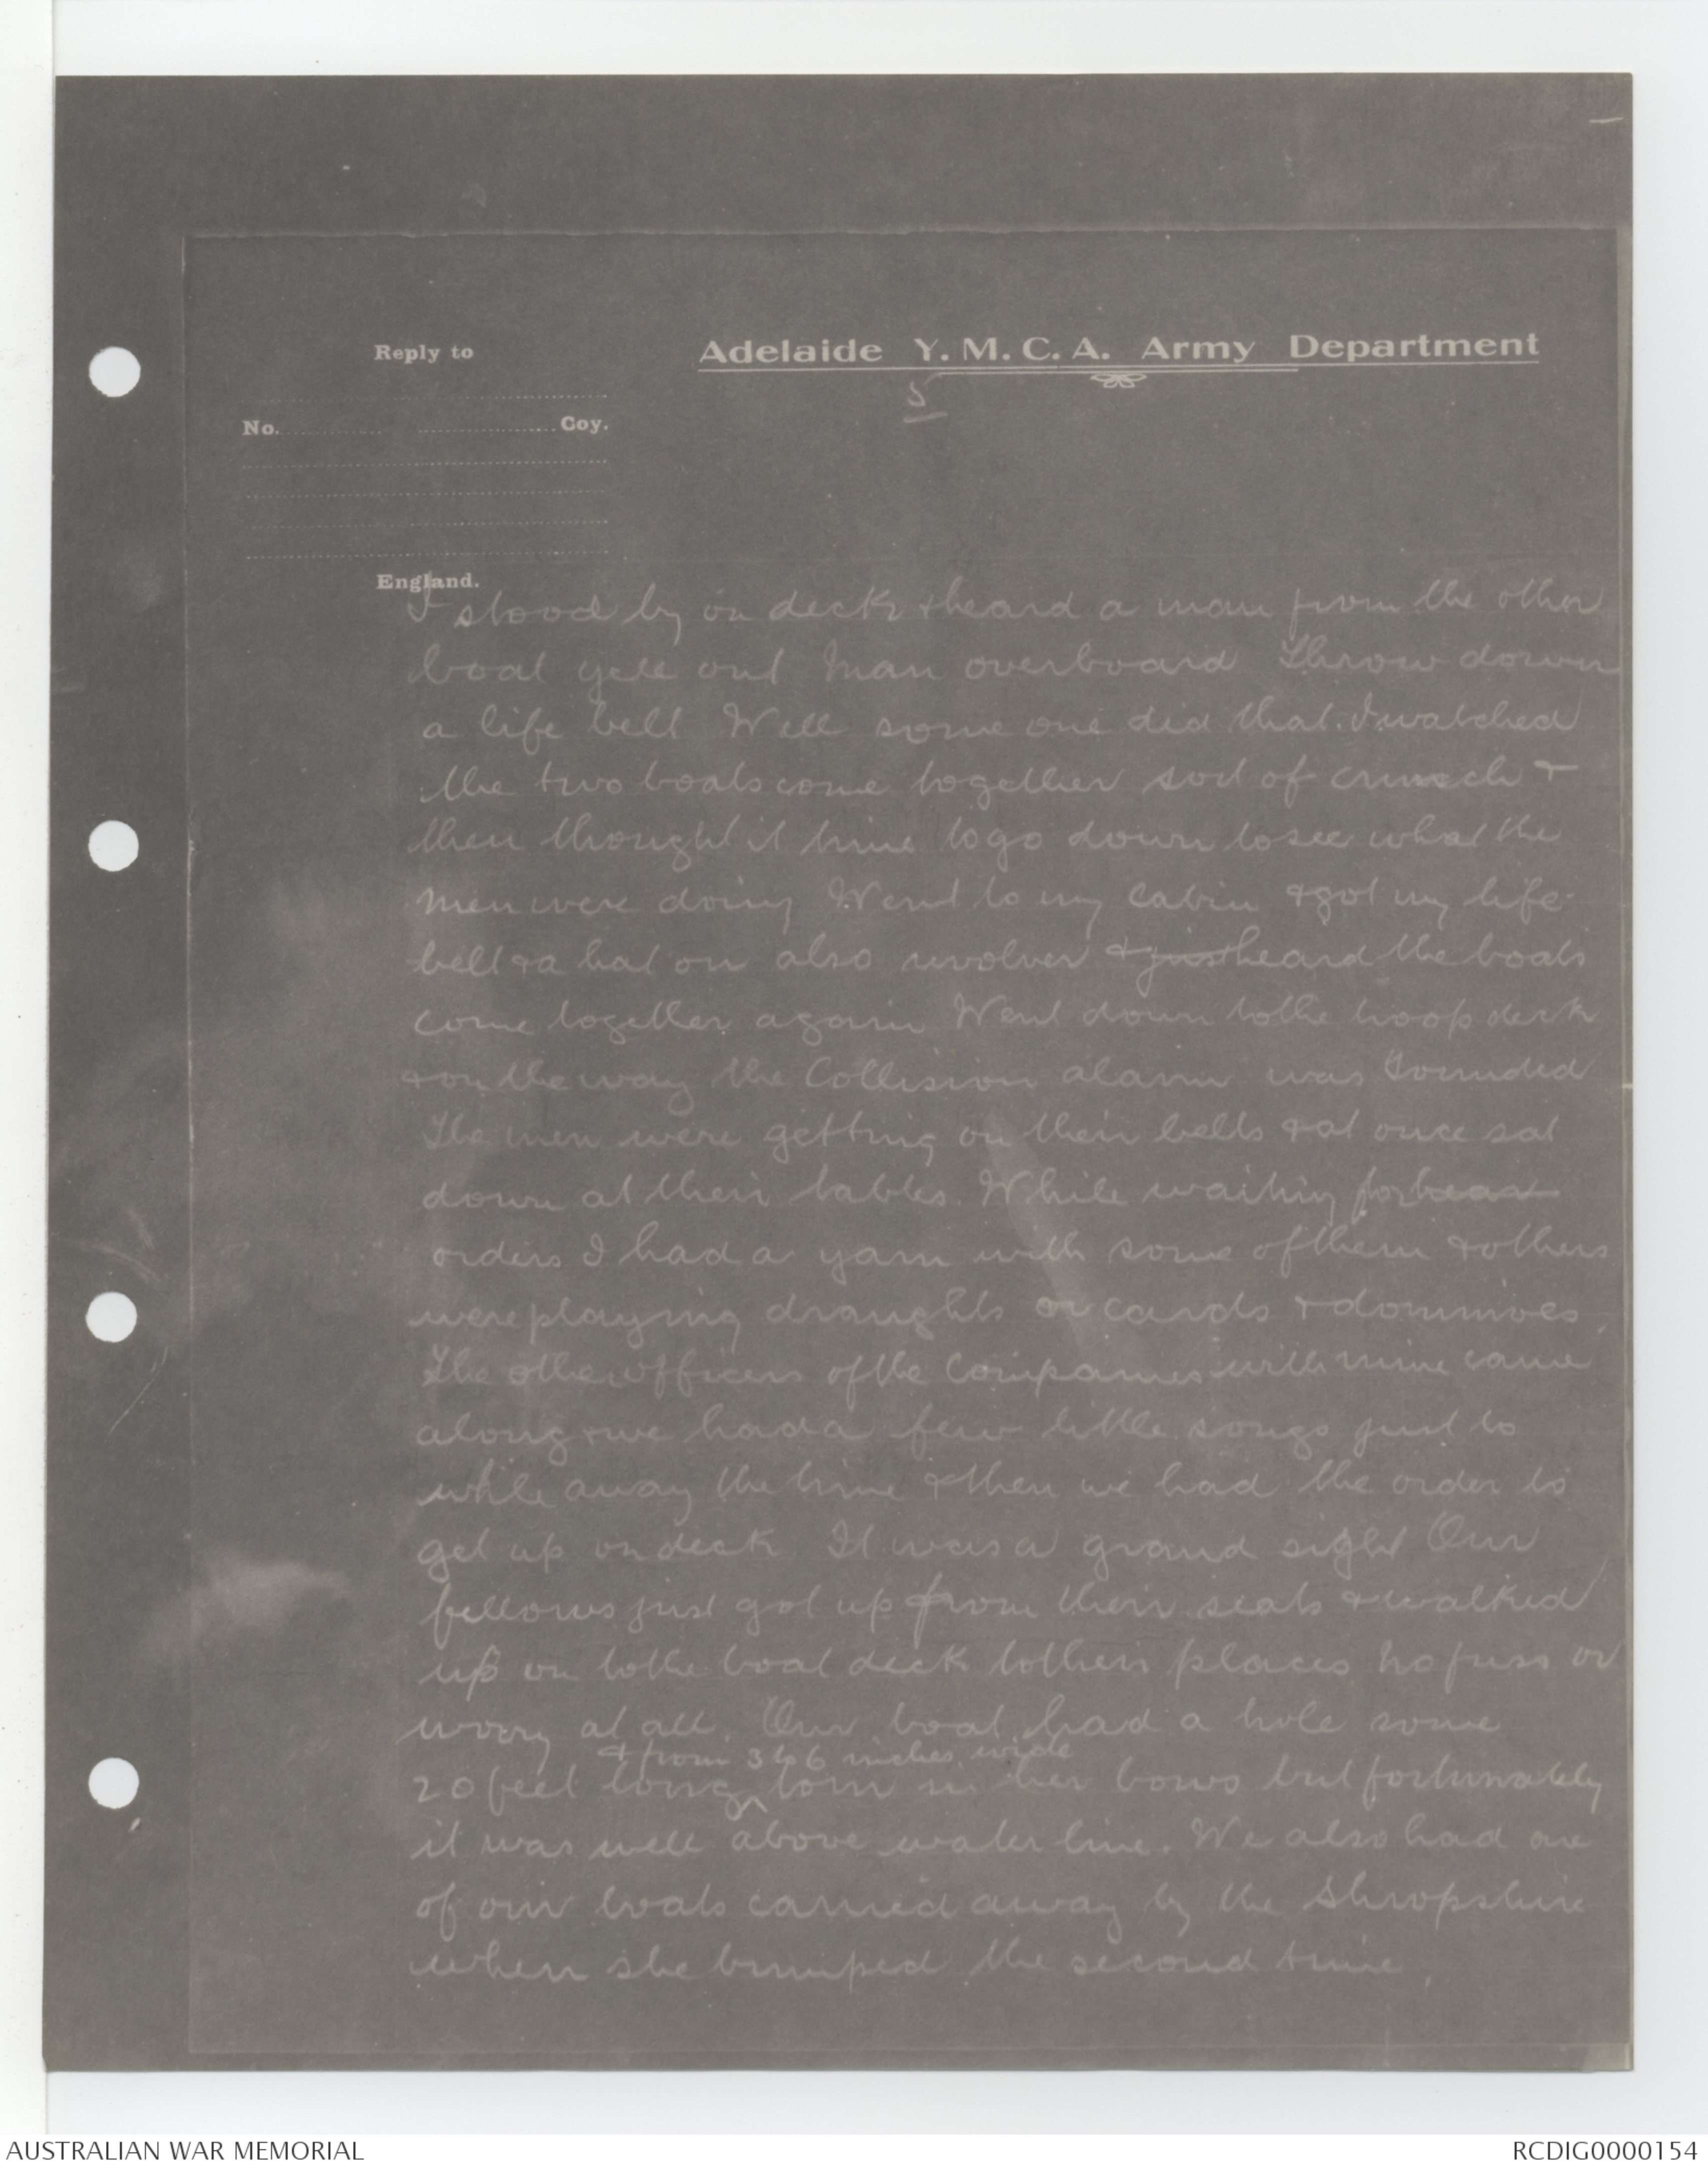 Reply to
Adelaide Y.M.C.A. Army Department
5
No. Coy.
England.
I stood by on deck & heard a man from the other
boat yell out Man overboard Throw down
a life belt Well some one did that. I watched
the two boats come together sort of crunch &
then thought it time to go down to see what the
men were doing Went to my cabin & got my life-
belt & a hat on also revolver & just heard the boats
come together again Went down to the troop deck
& on the way the Collision alarm was sounded
The men were getting on their belts & at once sat
down at their tables. While waiting for
orders I had a yarn with some of them & others
were playing draughts or cards & dominoes.
The other officers of the Companies with mine came
along & we had a few little songs just to
while away the time & then we had the order to
get up on deck It was a grand sight Our
fellows just got up from their seats & walked
up on to the boat deck to their places no fuss or
worry at all. Our boat had a hole some
& from 3 to 6 inches wide
20 feet long torn in her bows but fortunately
it was well above water line. We also had one
of our boats carried away by the Shropshire
when she bumped the second time.
AUSTRALIAN WAR MEMORIAL
RCDIG0000154